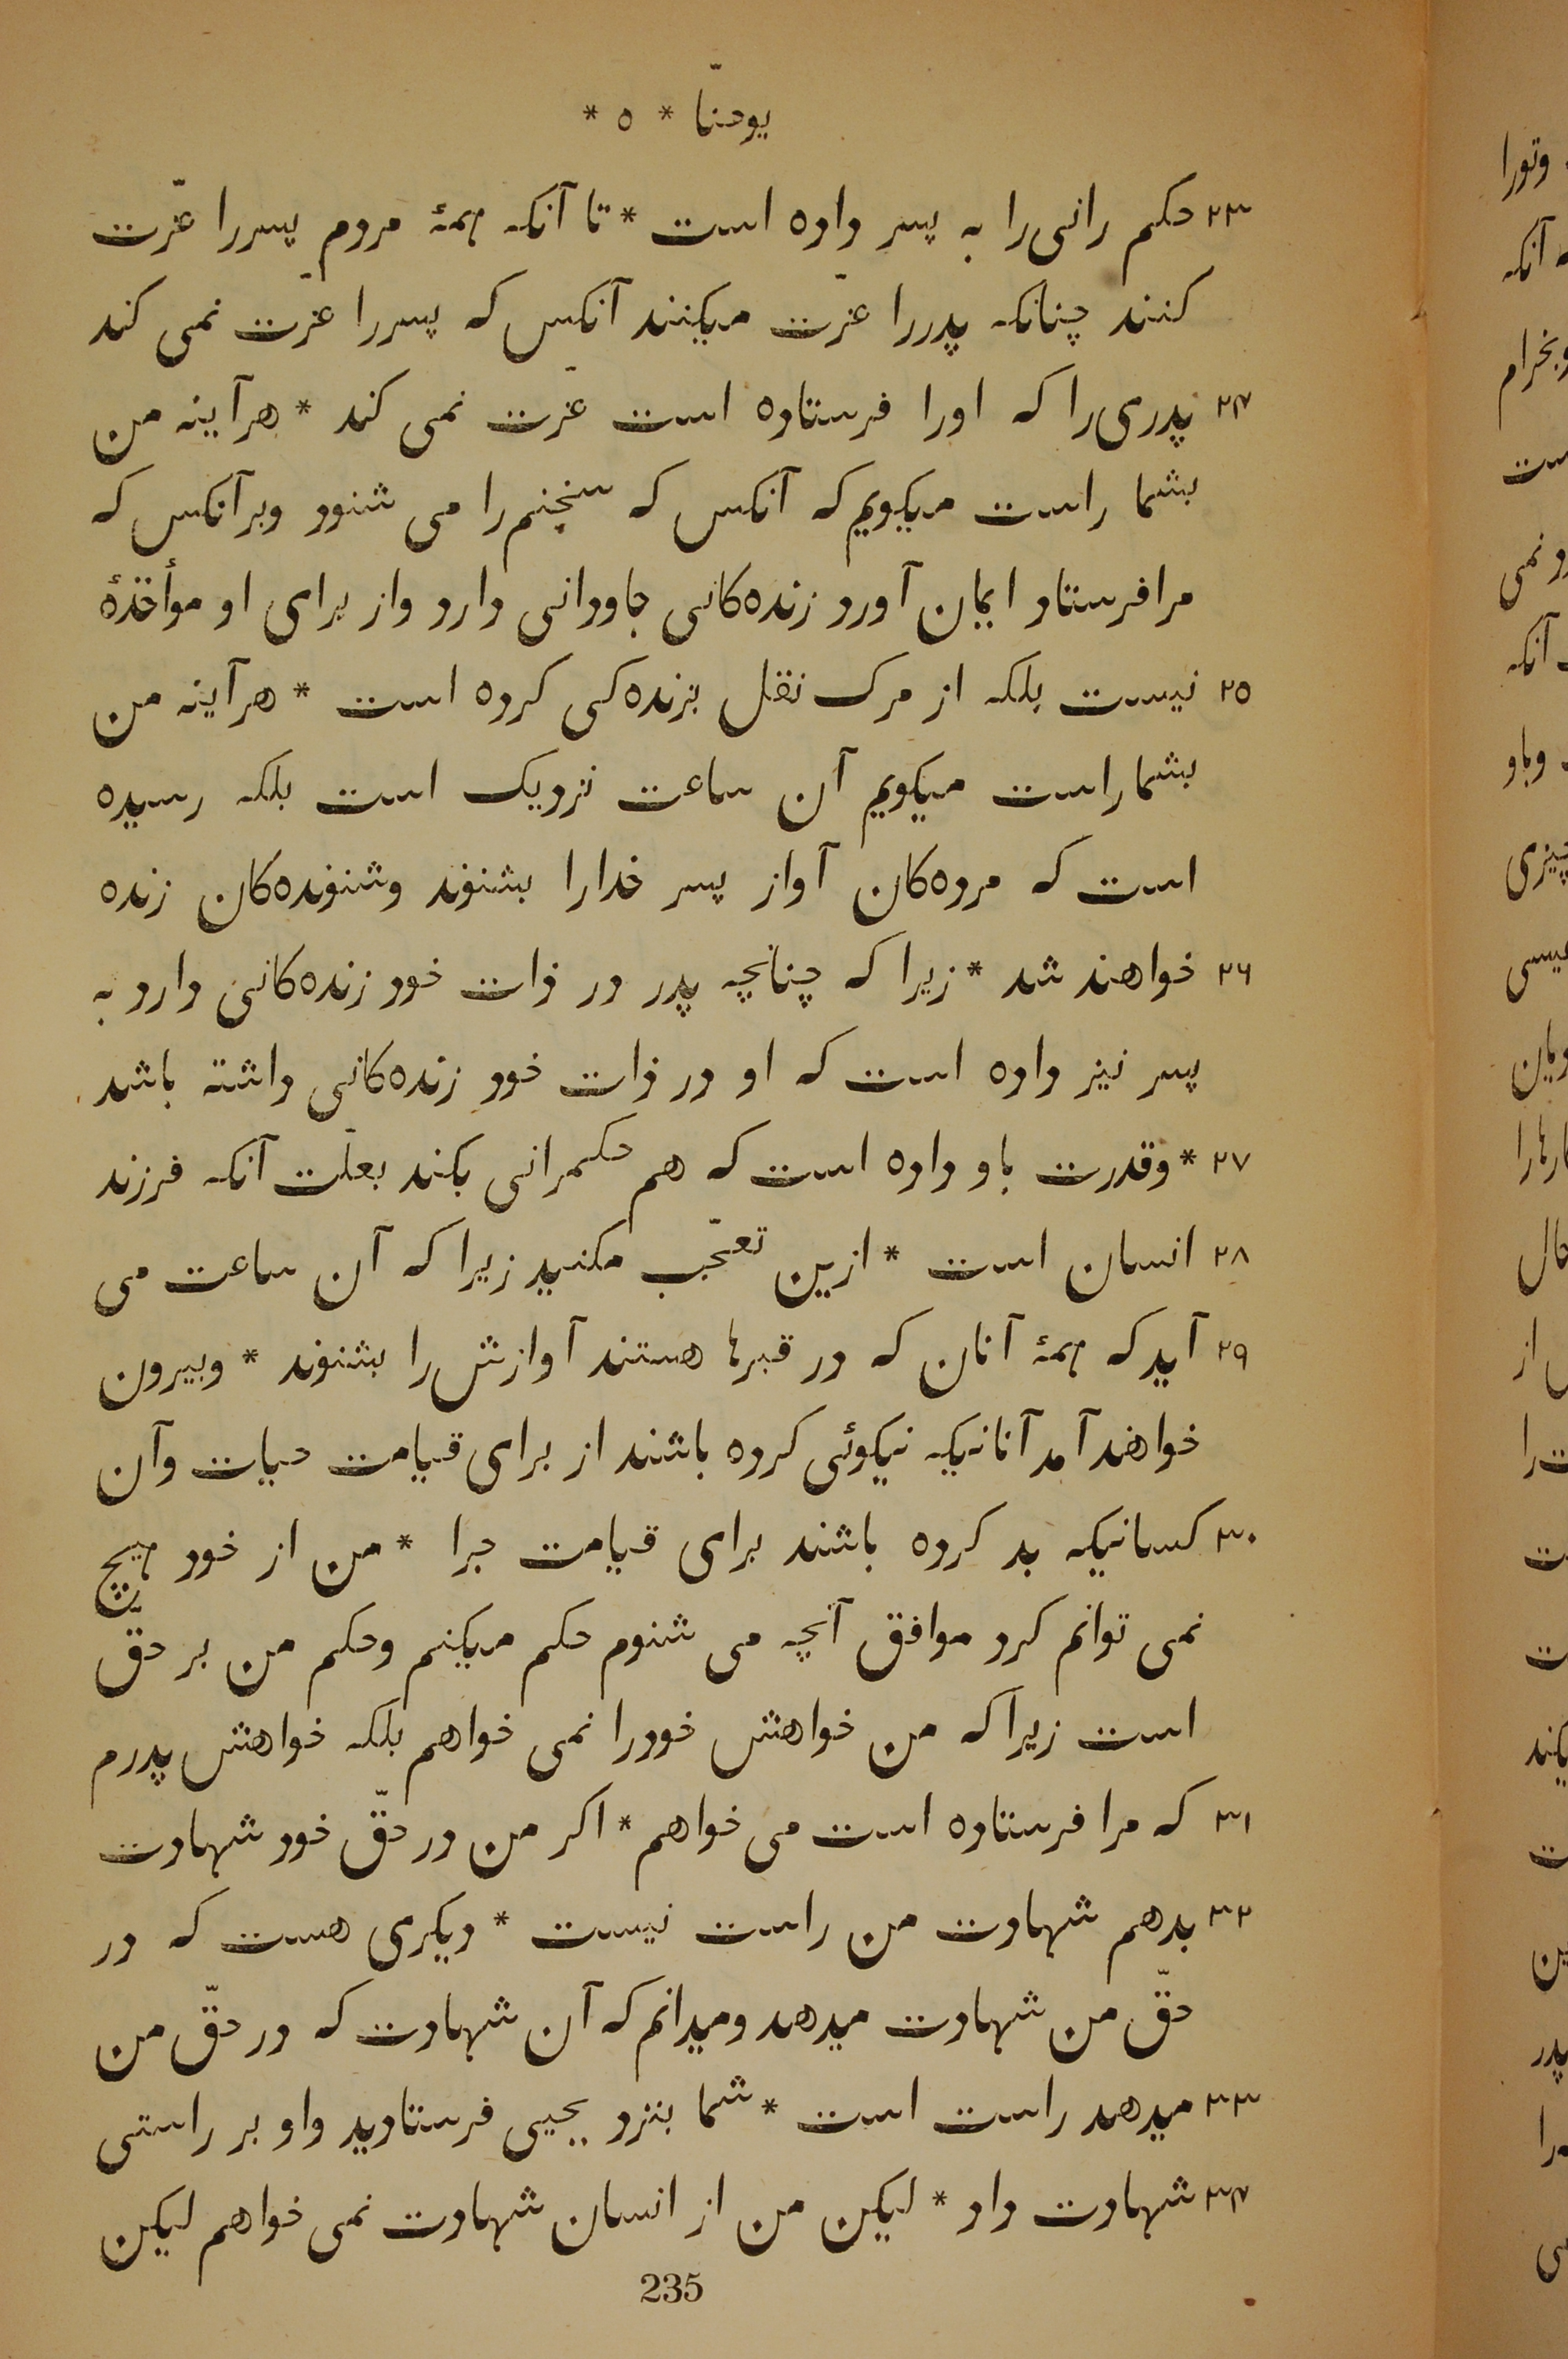 یوحنّا * ٥ *
٢٣ حکم رانی را به پسر داده است * تا آنکه همهٔ مردم پسررا عزّت
کنند چنانکه پدررا عزّت میکنند آنکس که پسررا عزّت نمی کند
٢٤ پدری را که اورا فرستاده است عزّت نمی کند * هرآینه من
بشما راست میکویم که آنکس که سخنم را می شنود وبرآنکس که
مرا فرستاد ایمان آورد زنده‌کانی جاودانی دارد واز برای او مواٌخذهٔ
٢٥ نیست بلکه از مرک نقل بزنده‌کی کرده است * هرآینه من
بشما راست میکویم آن ساعت نزدیک است بلکه رسیده
است که مرده‌کان آواز پسر خدارا بشنوند وشنونده‌کان زنده
٢٦ خواهند شد * زیرا که چنانچه پدر در ذات خود زنده‌کانی دارد به
پسر نیز داده است که او در ذات خود زنده‌کانی داشته باشد
٢٧ * وقدرت باو داده است که هم حکمرانی بکند بعلّت آنکه فرزند
٢٨ انسان است * ازین تعجّب مکنید زیرا که آن ساعت می
٢٩ آید که همهٔ آنان که در قبرها هستند آوازش را بشنوند * وبیرون
خواهند آمد آنانیکه نیکوئی کرده باشند از برای قیامت حیات وآن
٣٠ کسانیکه بد کرده باشند برای قیامت جزا * من از خود هیچ
نمی توانم کرد موافق آنچه می شنوم حکم میکنم وحکم من بر حقّ
است زیرا که من خواهش خودرا نمی خواهم بلکه خواهش پدرم
٣١ که مرا فرستاده است می خواهم * اکر من در حقّ خود شهادت
٣٢ بدهم شهادت من راست نیست * دیکری هست که در
حقّ من شهادت میدهد ومیدانم که آن شهادت که در حقّ من
٣٣ میدهد راست است * شما بنزد یحیی فرستادید واو بر راستی
٣٤ شهادت داد * لیکن من از انسان شهادت نمی خواهم لیکن
235